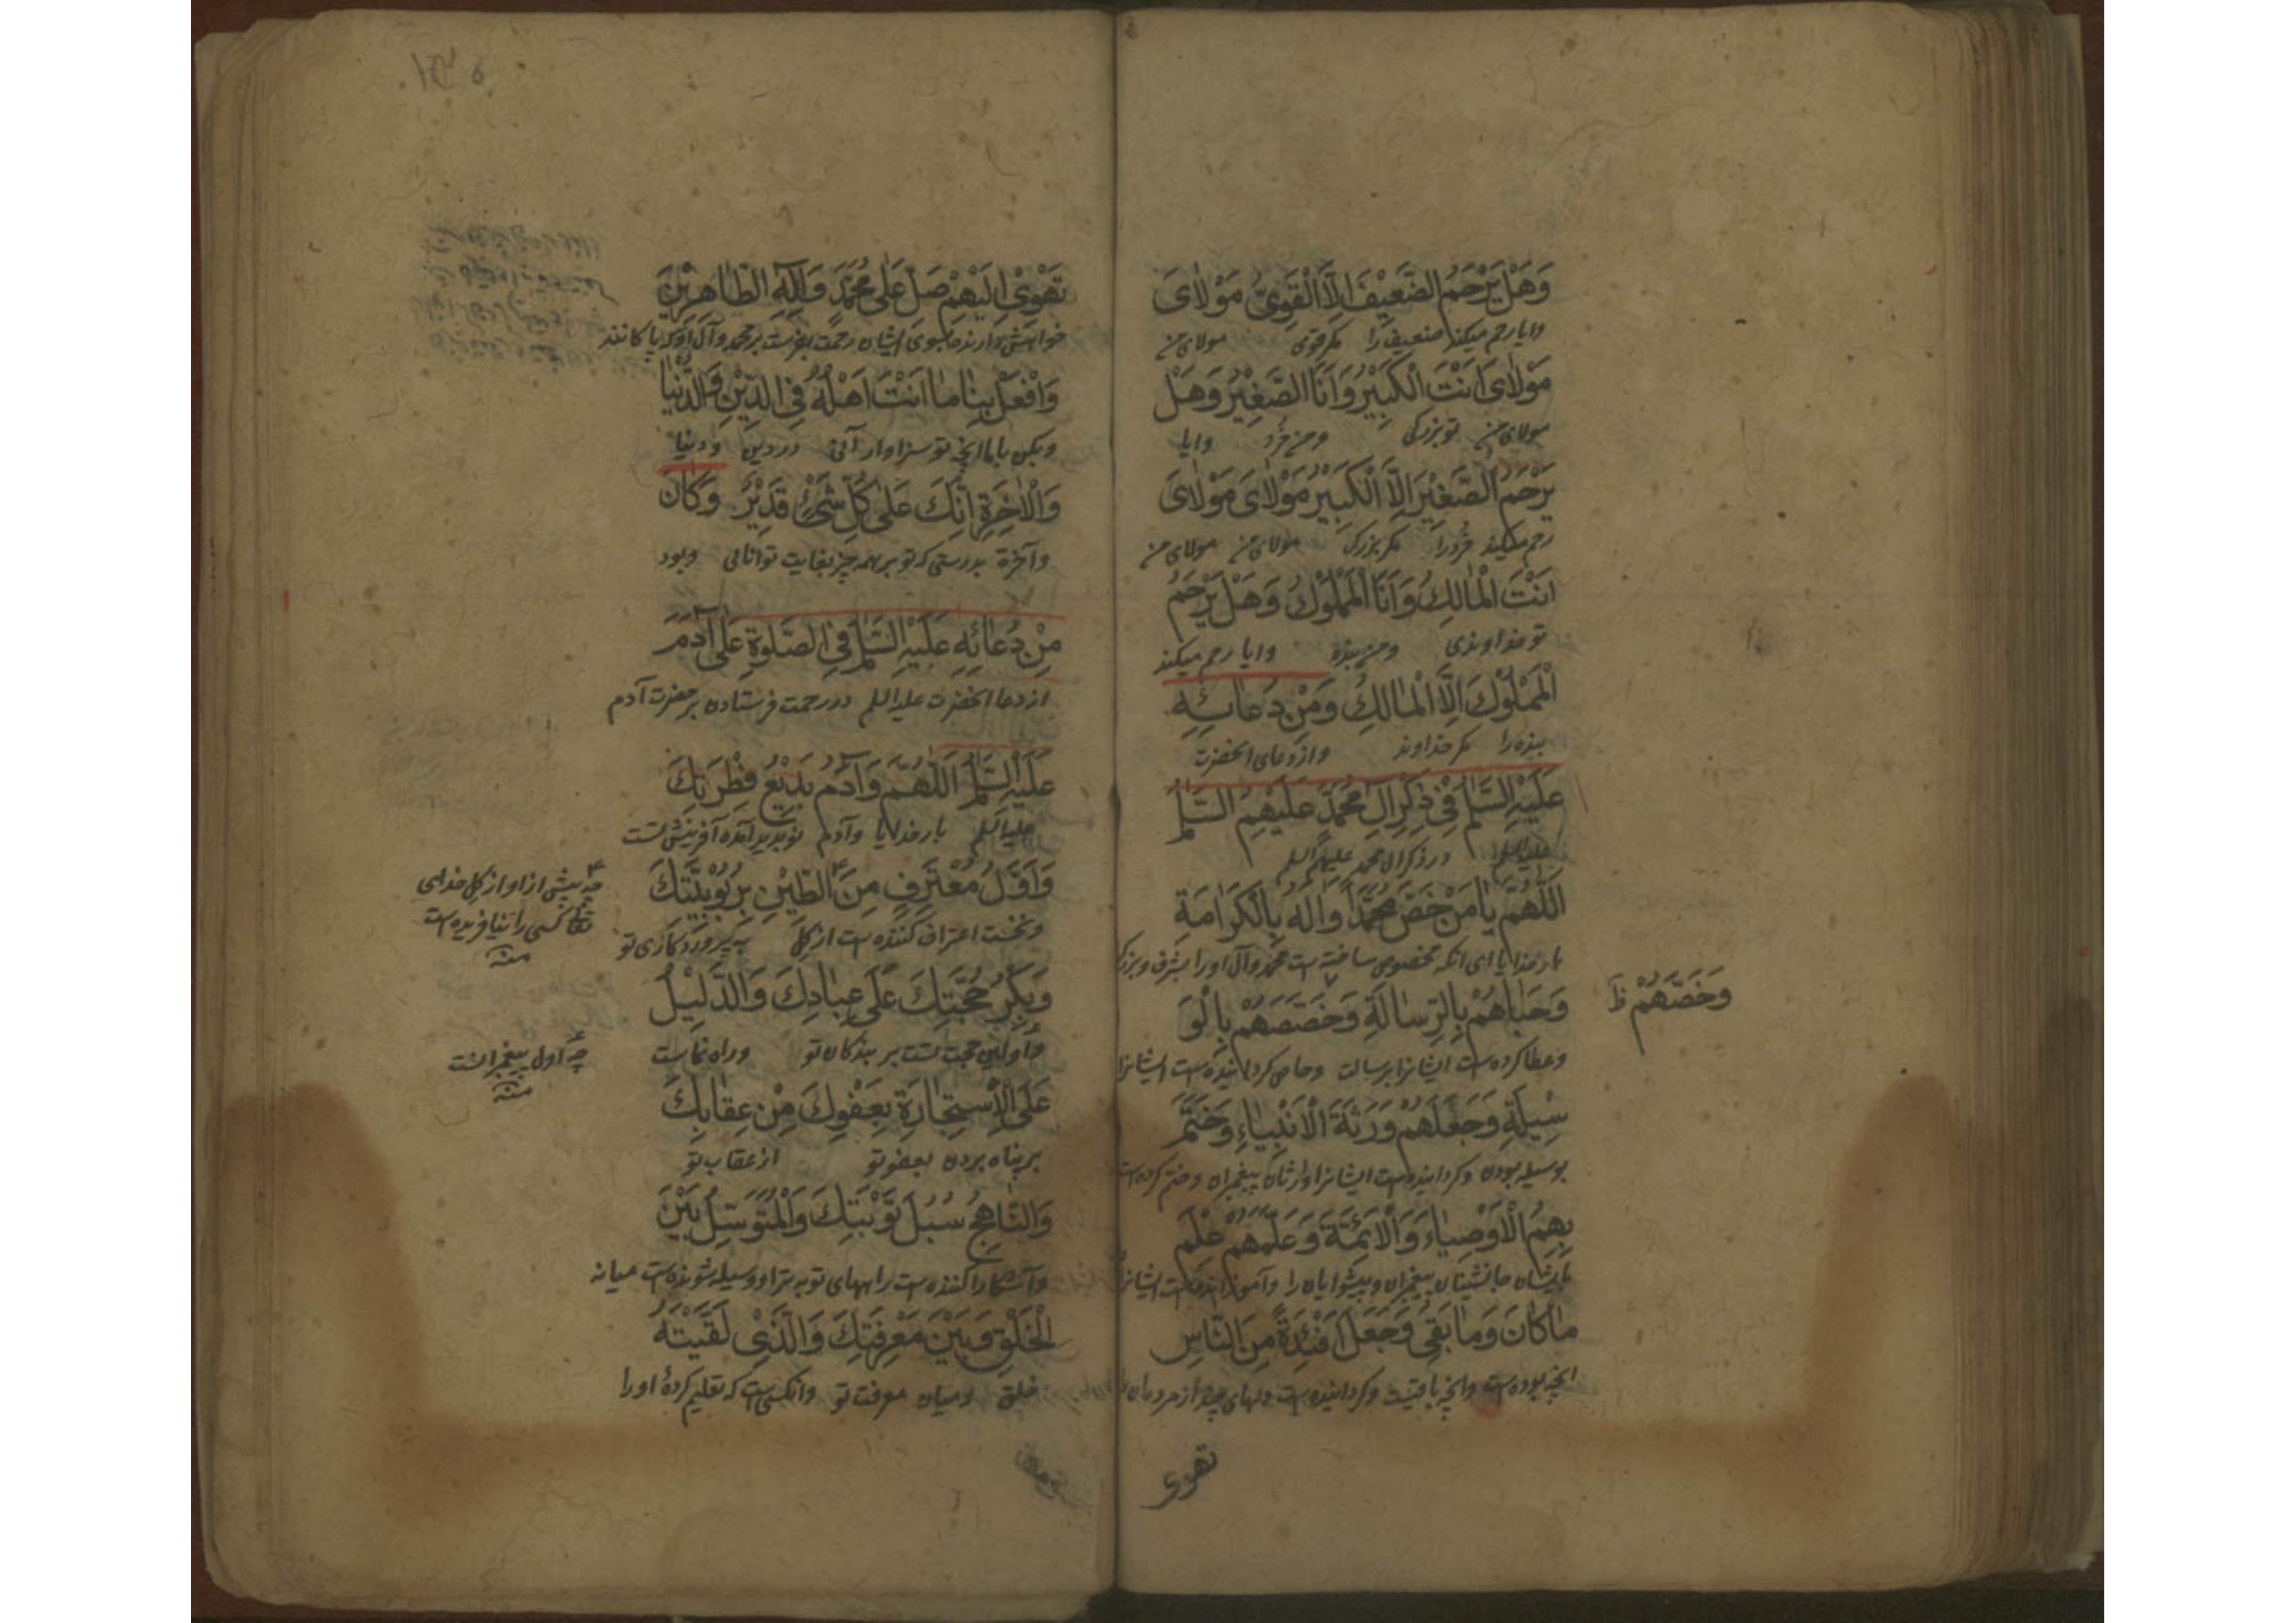 وَهَلْ يَرْحَمُ الضَّعِيْفَ اِلَّا الْقَوِيُّ مَوْلاٰىَ
وایا رحم میکند ضعیف را مکر قوی مولای من
مَوْلاٰىَ اَنْتَ الْكَبِيْرُ وَاَنَا الصَّغِيْرُ وَهَلْ
مولای من تو بزرکی ومن خُرد وایا
يَرْحَمُ الصَّغِيْرَ اِلَّا الْكَبِيْرُ مَوْلاٰىَ مَوْلاٰىَ
رحم میکند خُرد را مکر بزرک مولای من مولای من
اَنْتَ الْمٰالِكُ وَاَنَا الْمَمْلُوْكُ وَهَلْ يَرْحَمُ
تو خداوندی ومن بنده وایا رحم میکند
الْمَمْلُوْكَ اِلَّا الْمٰالِكُ وَمِنْ دُعٰائِهِ
بنده را مکر خداوند واز دعای انحضرت
عَلَيْهِ السَّلٰمُ فِيْ ذِكْرِ اٰلِ مُحَمَّدٍ عَلَيْهِمُ السَّلٰمُ
علیه السلم در ذکر ال محمد علیهم السلم
اَللّٰهُمَّ يٰا مَنْ خَصَّ مُحَمَّدًا وَاٰلَهُ بِالْكَرٰامَةِ
بار خدایا ای انکه مخصوص ساخته است محمد وآل او را بشرف وبزرکی
وَحَبٰاهُمْ بِالرِّسٰالَةِ وَخَصَّصَهُمْ بِالْوَ
وَخَصَّهُمْ ظ
وعطا کرده است ایشانرا برسالت وخاص کردانیده است ایشانرا
سِيْلَةِ وَجَعَلَهُمْ وَرَثَةَ الْاَنْبِيٰاءِ وَخَتَمَ
بوسیله بودن وکردانیده است ایشانرا وارثان پیغمبران وختم کرده است
بِهِمُ الْاَوْصِيٰاءَ وَالْاَئِمَّةَ وَعَلَّمَهُمْ عِلْمَ
بایشان جانشینان پیغمبران وپیشوایان را وآموزانیده است ایشانرا
مٰا كٰانَ وَمٰا بَقِىَ وَجَعَلَ اَفْئِدَةً مِنَ النّٰاسِ
انچه بوده است وانچه باقیست وکردانیده است دلهای چند از مردمان
تهوی
تَهْوِىْ اِلَيْهِمْ صَلِّ عَلٰى مُحَمَّدٍ وَاٰلِهِ الطّٰاهِرِيْنَ
خواهش دارند بسوی ایشان رحمت بفرست بر محمد وآل او که پاکانند
وَافْعَلْ بِنٰا مٰا اَنْتَ اَهْلُهُ فِى الدِّيْنِ وَالدُّنْيٰا
وبکن با ما انچه تو سزاوار آنی در دین ودنیا
وَالْاٰخِرَةِ اِنَّكَ عَلٰى كُلِّ شَيْءٍ قَدِيْرٌ وَكٰانَ
وآخرة بدرستی که تو بر همه چیز بغایت توانائی وبود
مِنْ دُعٰائِهِ عَلَيْهِ السَّلٰمُ فِى الصَّلٰوةِ عَلٰى اٰدَمَ
از دعا انحضرت علیه السلم در رحمت فرستادن بر حضرت آدم
عَلَيْهِ السَّلٰمُ اَللّٰهُمَّ وَاٰدَمُ بَدِيْعُ فِطْرَتِكَ
علیه السلم بار خدایا وآدم نو پدید آمده آفرینش تست
وَاَوَّلُ مُعْتَرِفٍ مِنَ الطِّيْنِ بِرُبُوْبِيَّتِكَ
چه پیش از او از کل خدای
تعا کسی را نیافریده است
منه
ونخست اعتراف کننده است از کل به پروردکاری تو
وَبِكْرُ حُجَّتِكَ عَلٰى عِبٰادِكَ وَالدَّلِيْلُ
واولین حجت تست بر بندکان تو وراه نماست
چه اول پیغمبرانست
منه
عَلَى الْاِسْتِجٰارَةِ بِعَفْوِكَ مِنْ عِقٰابِكَ
بر پناه بردن بعفو تو از عقاب تو
وَالنّٰاهِجُ سُبُلَ تَوْبَتِكَ وَالْمُتَوَسِّلُ بَيْنَ
وآشکارا کننده است راههای توبه ترا ووسیله شونده است میانه
الْخَلْقِ وَبَيْنَ مَعْرِفَتِكَ وَالَّذِىْ لَقَّيْتَهُ
خلق ومیان معرفت تو وانکسی است که تعلیم کردهٔ او را